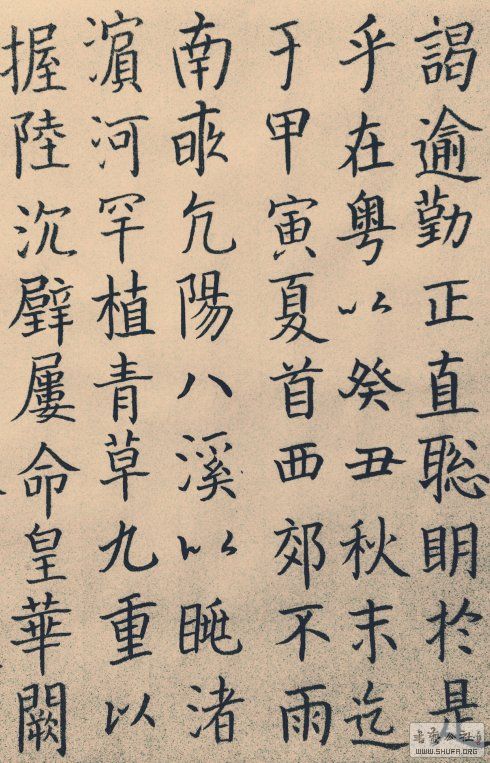 謁逾勤正直聡眀於是
乎在粤以癸丑秋末迄
于甲寅夏首西郊不雨
南畝亢陽八溪以眺渚
濵河罕植青草九重以
握陸沉璧屢命皇華闕
WWW.SHUFA.ORG